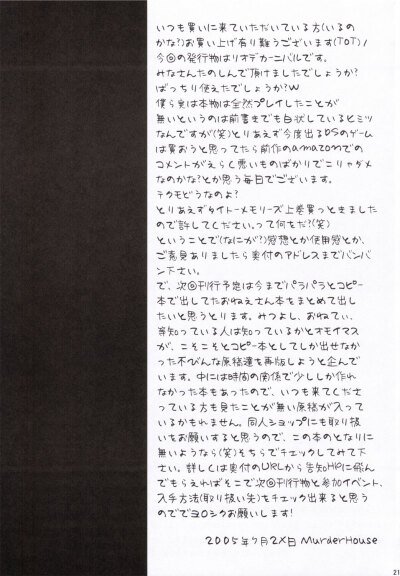 いつも買いに来ていただいている方(いるの
かな?)お買い上げ有り難うございます(TOT)/
今回の発行物はリオデカーニバルです。
みなさんたのしんで頂けましたでしょうか?
ばっちり使えたでしょうか?w
僕ら実は本物は全然プレイしたことが
無いというのは前書きでも白状しているヒミツ
なんですが(笑)とりあえず今度出るDSのゲーム
は買おうと思ってたら前作のamazonでの
コメントがえらく悪いものばかりでこりゃダメ
なのかな?とか思う毎日でございます。
テクモどうなのよ?
とりあえずタイトーメモリーズ上巻買っときました
ので許してください。って何をだ?(笑)
ということで(なにが?)感想とか使用感とか、
ご意見ありましたら奥付のアドレスまでバンバ
ン下さい。
で、次回刊行予定は今までパラパラとコピー
本で出してたおねえさん本をまとめて出し
たいと思うとります。みつよし、おねてぃ、
等知っている人は知っているかとオモイマス
が、こそこそとコピー本としてしか出せなか
った不びんな原稿達を再版しようと企んで
います。中には時間の関係で少ししか作れ
なかった本もあったので、いつも来てくださ
っている方も見たことが無い原稿が入って
いるかもれません。同人ショップにも取り扱
いもお願いすると思うので、この本のとなりに
無いようなら(笑)そちらでチェックしてみて下
さい。詳しくは奥付のURLから告知HPに飛ん
でもらえればそこで次回刊行物と参加イベント、
入手方法(取り扱い先)をチェック出来ると思う
のででヨロシクお願いします!
2005年7月2X日 MurderHouse
21